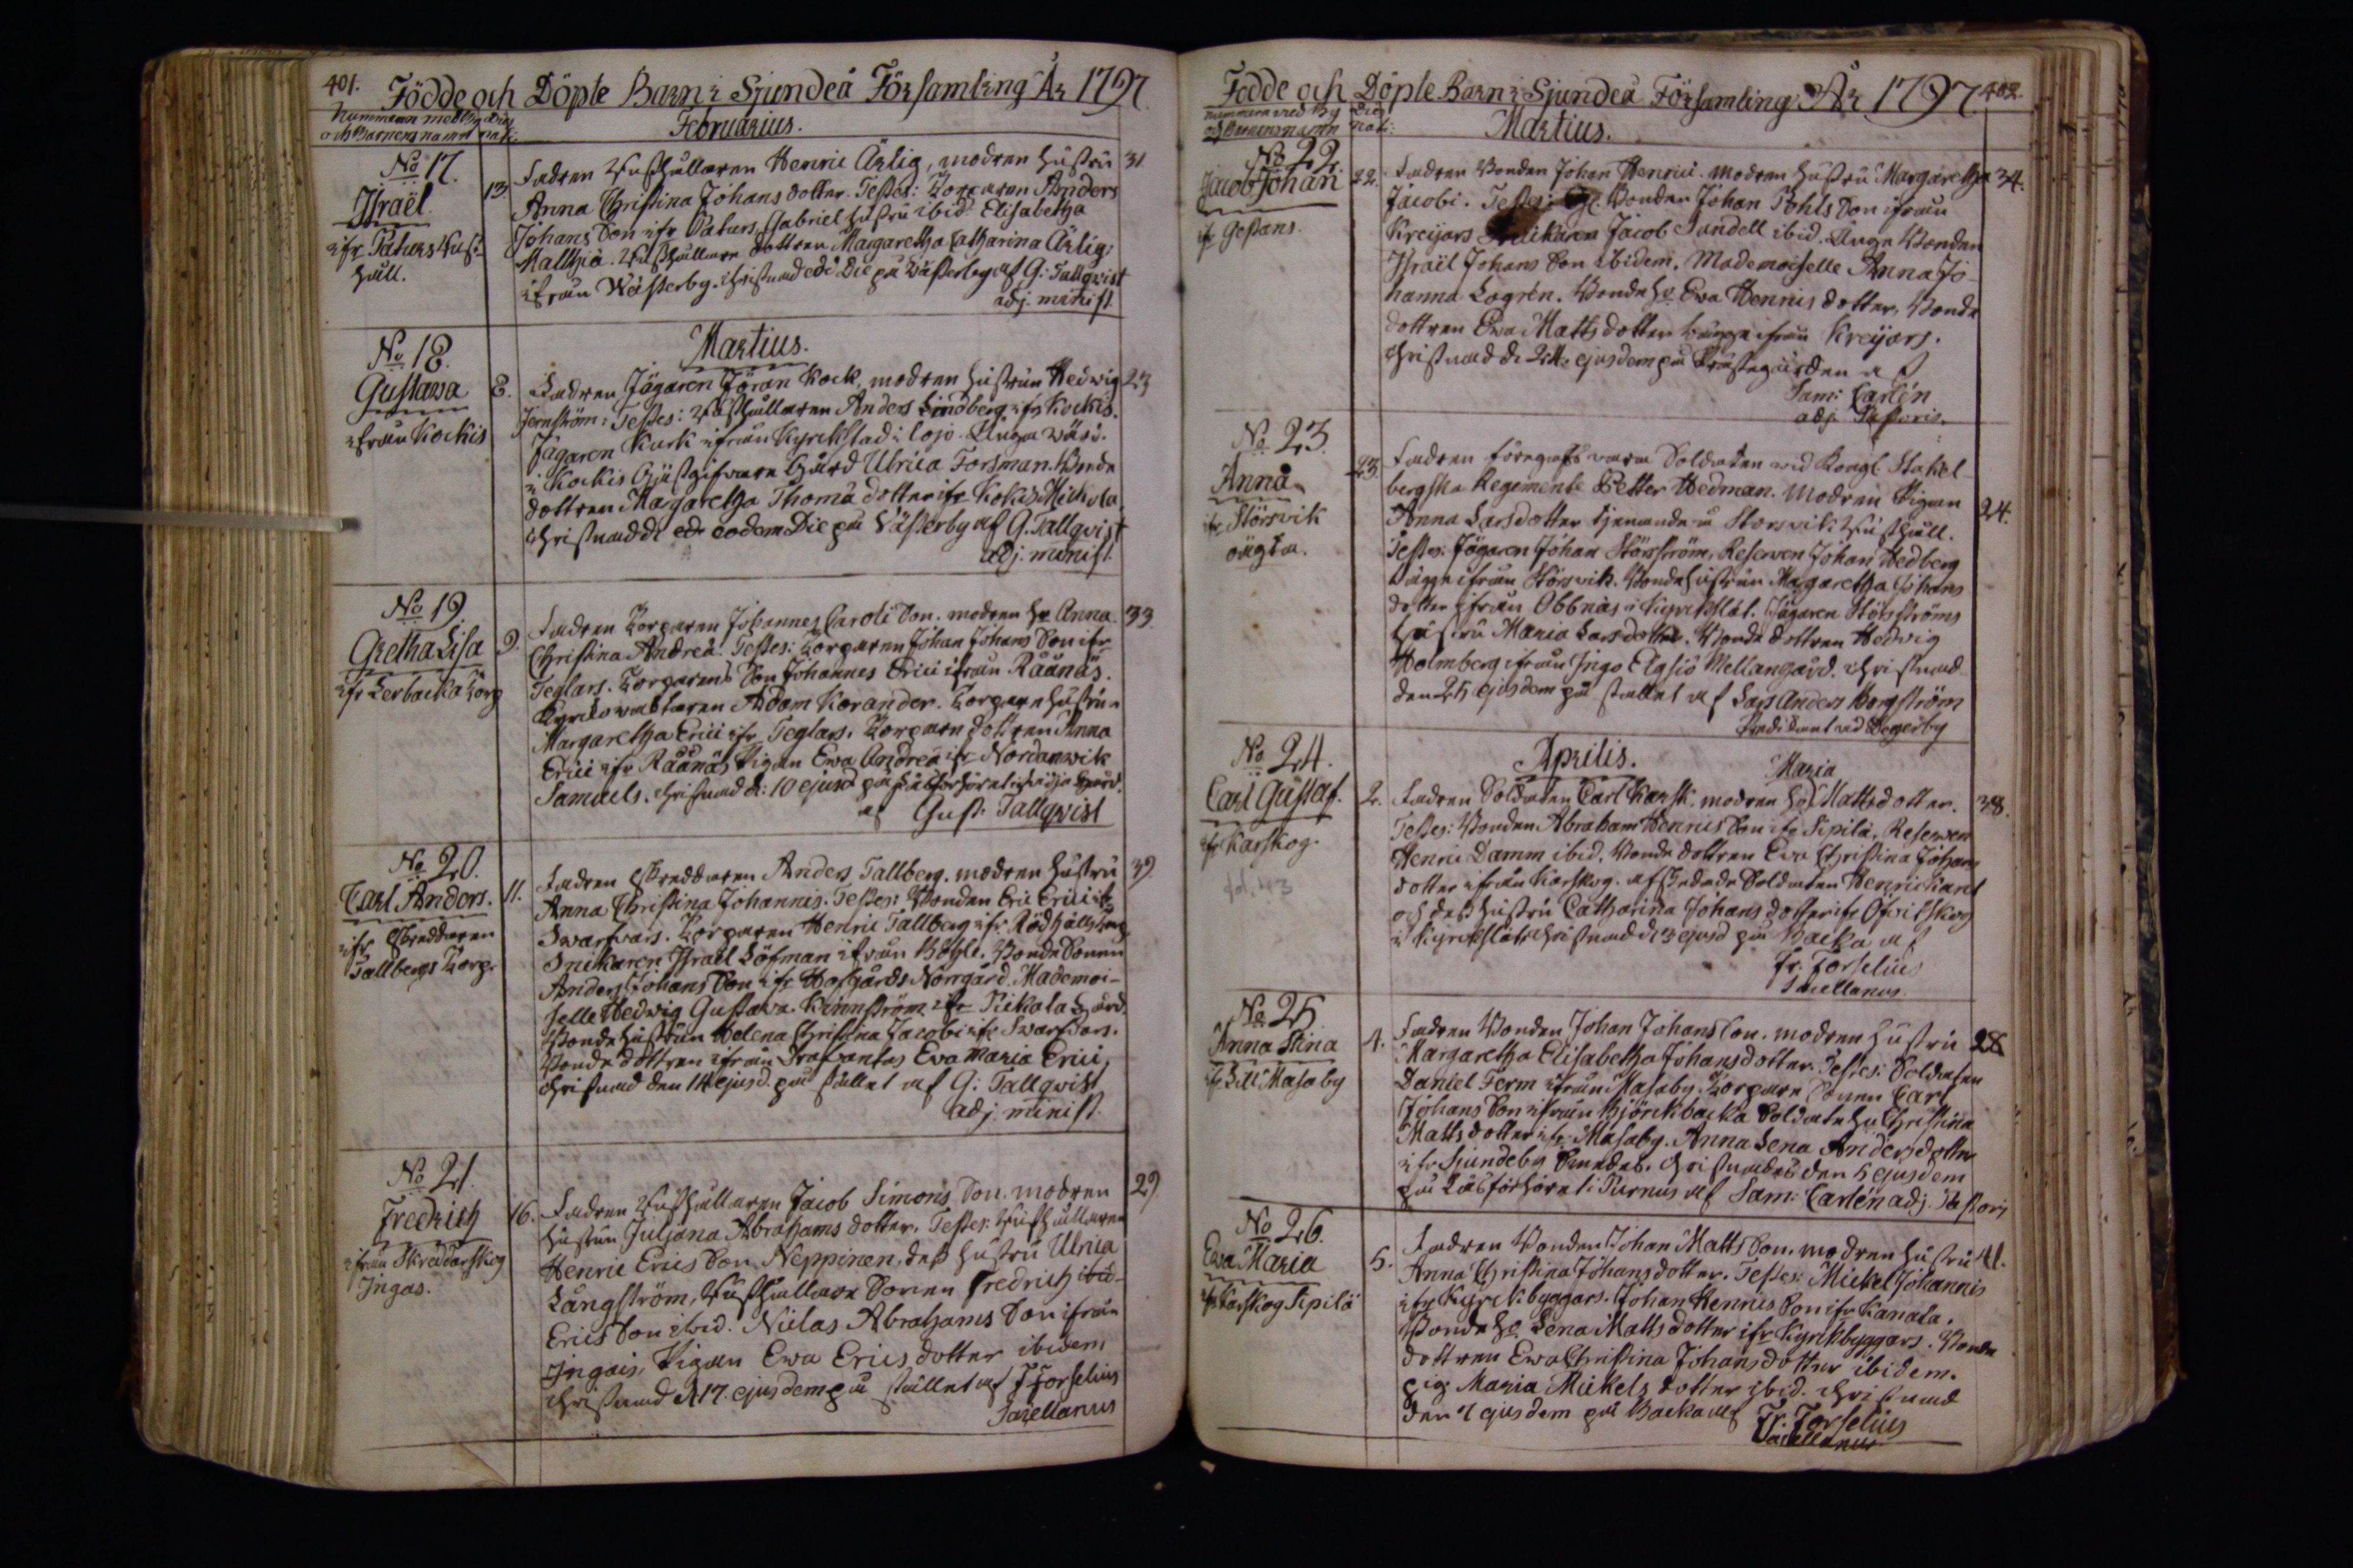 401. Födde och Döpte Barn i Sjundeå Församling År 1797.
Nummern med By Dies
och Barnens namn nat:
Februarius.
No 17.
Israël
ifr Paturs Rust-
håll.
13.
Fadren Rusthållaren Henric Ärlig, modren hustru 31
Anna Christina Johans dotter. Testes: Torparen Anders
Johans Son ifr Paturs, Gabriel hustru ibid. Elisabetha
Matthiæ. Rusthållare dottren Margaretha Catharina Ärlig
ifrån Wästerby. Christnad eod. Die på Wästerby af G: Tallqvist
adj. minist.
Martius.
No 18.
Gustava
ifrån Kockis
8.
Fadren Jägaren Jöran Kock, modren hustrun Hedwig 23
Jernström. Testes: Rusthållaren Anders Lindberg ifr Kockis.
Jägaren Kurk ifrån Kyrckstad i Lojo. Unga
i Kockis Gästgifvare Gård Ulrica Forsman. Bonde
dottren Margaretha Thomæ dotter ifr Kokis Mickola
Christnad d. eodem Die på Wästerby af G. Tallqvist
adj. minist.
No 19.
Gretha Lisa
ifr Lerbacka Torp
9.
Fadren Torparen Johannes Caroli Son. modren hu Anna 33
Christina Andreæ. Testes: Torparen Johan Johans Son ifr
Teglars. Torparens Son Johannes Erici ifrån Råånäs.
Kyrckowacktaren Adam Korander. Torpare hustrun
Margaretha Erici ifr Teglars. Torpare dottren Anna
Erici ifr Råånäs Pigan Ewa Andreæ ifr Nordanwik
Samuels. Christnad d: 10 ejusd på Läsförhöret i
af Gust. Tallqvist
No 20.
Carl Anders.
ifr Skreddaren
Tallbergs Torp.
11.
Fadren Skreddaren Anders Tallberg. modren hustru 39
Anna Christina Johannis. Testes: Bonden Eric Erici ifr
Swartvars. Torparen Henric Tallberg ifr Rödhälls Torp
Snickaren Israël Löfman ifrån Böhle. Bonde Sonen
Anders Johans Son ifr Hofgårds Norrgård. Mademoi-
selle Hedwig Gustava Kinnström ifr Pickala Gård.
Bonde hustrun Helena Christina Jacobi ifr Swartvars.
Bonde dottren ifrån Drafvantas Eva Maria Erici,
Christnad den 14 ejusd. på stället af G: Tallqvist
adj. minist.
No 21.
Fredrich
ifrån Skreddarskog
Ingas.
16.
Fadren Rusthållaren Jacob Simons Son. modren 29
hustrun Juliana Abrahams dotter. Testes: Rusthållaren
Henric Erics Son Neppinen, dess hustru Ulrica
Långström, Rusthållare Sonen Fredrich
Erics Son ibid. Niclas Abrahams Son ifrån
Ingais, Pigan Ewa Erics dotter ibidem
Christnad d 17. ejusdem på stället af F Forselius
Sacellanus
Födde och Döpte Barn i Sjundeå Församling År 1797 402.
Nummern med By Dies
och Barnens namn nat:
Martius.
No 22.
Jacob Johan
ifr Gestans.
22.
Fadren Bonden Johan Henrici. modren hustru Margaretha 34.
Jacobi. Testes: Bonden Johan Pohls Son ifrån
Kreijars Snickaren Jacob Sundell ibid. Unge Bonden
Israël Johans Son ibidem. Mademoiselle Anna Jo-
hanna Logrén. Bonde hu Ewa Henrics dotter, Bonde
dottren Ewa Matts dotter bägge ifrån Kreijars.
Christnad d. 24. ejusdem på Prästegården af
Sam: Carlén
adj. Pastoris.
No 23.
Anna
ifr Störsvik
oägta.
23.
Fadren föregifs wara Soldaten wid Kongl. Stakel-
bergska Regemente Petter Hedman. Modren Pigan
Anna Larsdotter tjenande å Störsvik Rusthåll. 24.
Testes: Jägaren Johan Störström, Reserven Johan Hedberg
bägge ifrån Störsvik. Bonde hustrun Margaretha Johans
dotter ifrån Obbnäs i Kyrckslät. Jägaren Störströms
hustru Maria Larsdotter. Bonde dottren Hedwig
Holmberg ifrån Ingo Elgsiö Mellangård. Christnad
den 25 ejusdem på stället af Lars Anders Borgström
Predikant wid Degerby
Aprilis.
No 24.
Carl Gustaf.
ifr Karskog.
fol. 43
2.
Maria
Fadren Soldaten Carl Karsk. modren hu Mattsdotter. 38.
Testes: Bonden Abraham Henrics Son ifr Sipilä. Reserven
Henric Damm ibid. Bonde dottren Eva Christina Johans
dotter ifrån Karskog. afskedade Soldaten Henric Kant
och dess hustru Catharina Johans dotter ifr Ofvitskog
i Kyrckslät Christnad d. 3 ejusd på Backa af
Fr: Forselius
Sacellanus.
No 25
Anna Stina
ifr Lill Masaby
4.
Fadren Bonden Johan Johans Son. modren hustru 28
Margaretha Elisabetha Johans dotter. Testes: Soldaten
Daniel Ferm ifrån Masaby. Torpare Sonen Carl
Johans Son ifrån Björckbacka Soldate hu Christina
Matts dotter ifr Masaby. Anna Lena Anders dotter
ifr Sjundeby Christnades den 5 ejusdem
på Läsförhöret i Purnus af Sam: Carlén adj. Pastoris
No 26.
Ewa Maria
ifr Karskog Sipilä
5.
Fadren Bonden Johan Matts Son. modren hustru 41.
Anna Christina Johans dotter. Testes: Mickel Johannis
ifr Kyrckbyggars. Johan Henrics Son ifr Kanala.
Bonde hu. Lena Matts dotter ifr Kyrckbyggars. Bonde
dottren Ewa Christina Johans dotter ibidem.
pig: Maria Mickels dotter ibid. Christnad
den 7 ejusdem på Backa af Fr: Forselius
Sacellanus